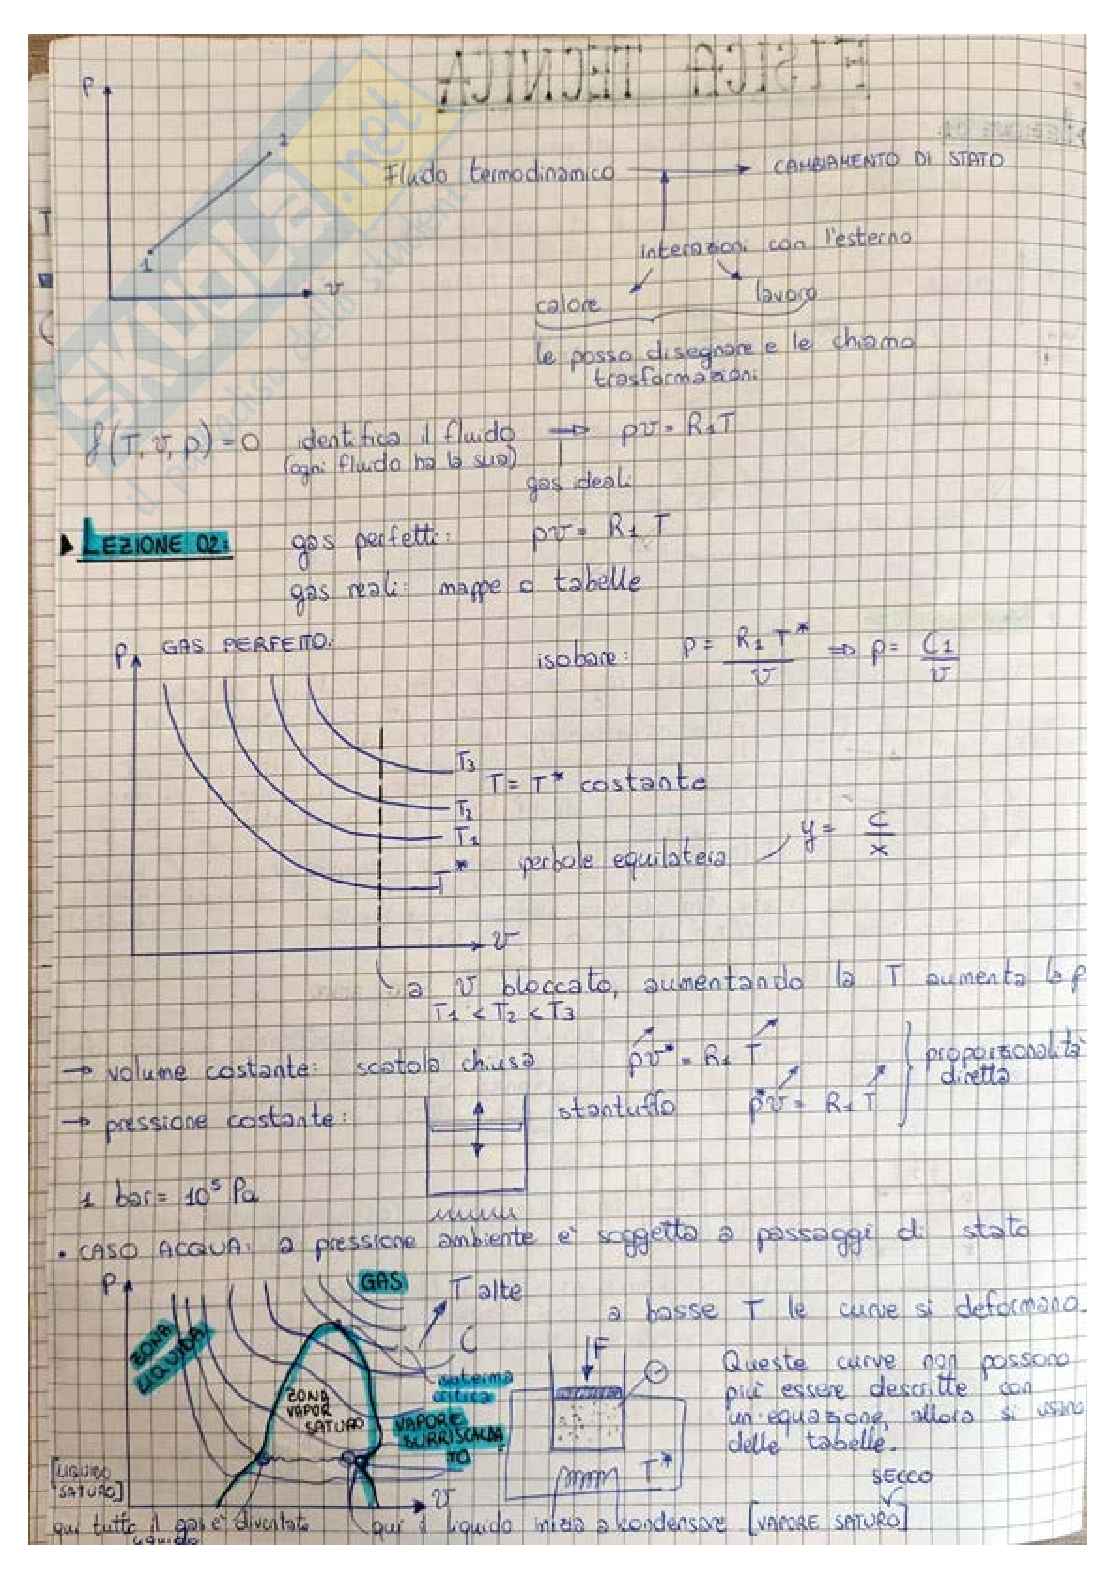 FISICA TECNICA
P
2
1
v
Fluido termodinamico → CAMBIAMENTO DI STATO
interazioni con l'esterno
calore lavoro
le posso disegnare e le chiamo
trasformazioni
f(T, v, p) = 0 identifica il fluido ⇒ pv = R1T
(ogni fluido ha la sua)
gas ideali
LEZIONE 02: gas perfetti: pv = R1 T
gas reali: mappe o tabelle
P GAS PERFETTO:
isobare: p = R1 T* / v ⇒ p = C1 / v
T3
T = T* costante
T2
T1
T*
perbole equilatera y = c / x
v
a v bloccato, aumentando la T aumenta la p
T1 < T2 < T3
→ volume costante: scatola chiusa pv* = R1 T
proporzionalità
diretta
→ pressione costante: stantuffo p*v = R1 T
1 bar = 10⁵ Pa
• CASO ACQUA: a pressione ambiente e' soggetta a passaggi di stato
P
GAS
T alte
a basse T le curve si deformano.
ZONA
LIQUIDA
C
isoterma
critica
F
Queste curve non possono
più essere descritte con
un equazione, allora si usano
delle tabelle.
ZONA
VAPOR
SATURO
VAPORE
SURRISCALDA
TO
T*
[LIQUIDO
SATURO]
v
SECCO
qui tutto il gas e' diventato
liquido
qui il liquido inizia a condensare [VAPORE SATURO]
SKUOLA.net
il paradiso dello studente